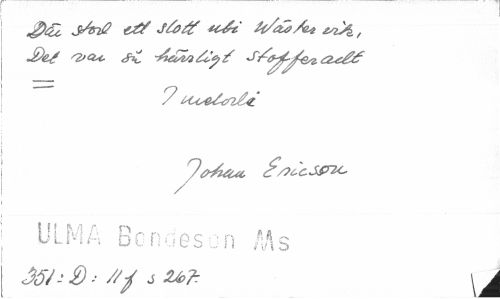 Där stod ett slott ubi Wästervik,
Det var så härsligt stofferadt
I melodi
Johan Ericson
ULMA Bondeson Ms
351: D: 11 f s 267.